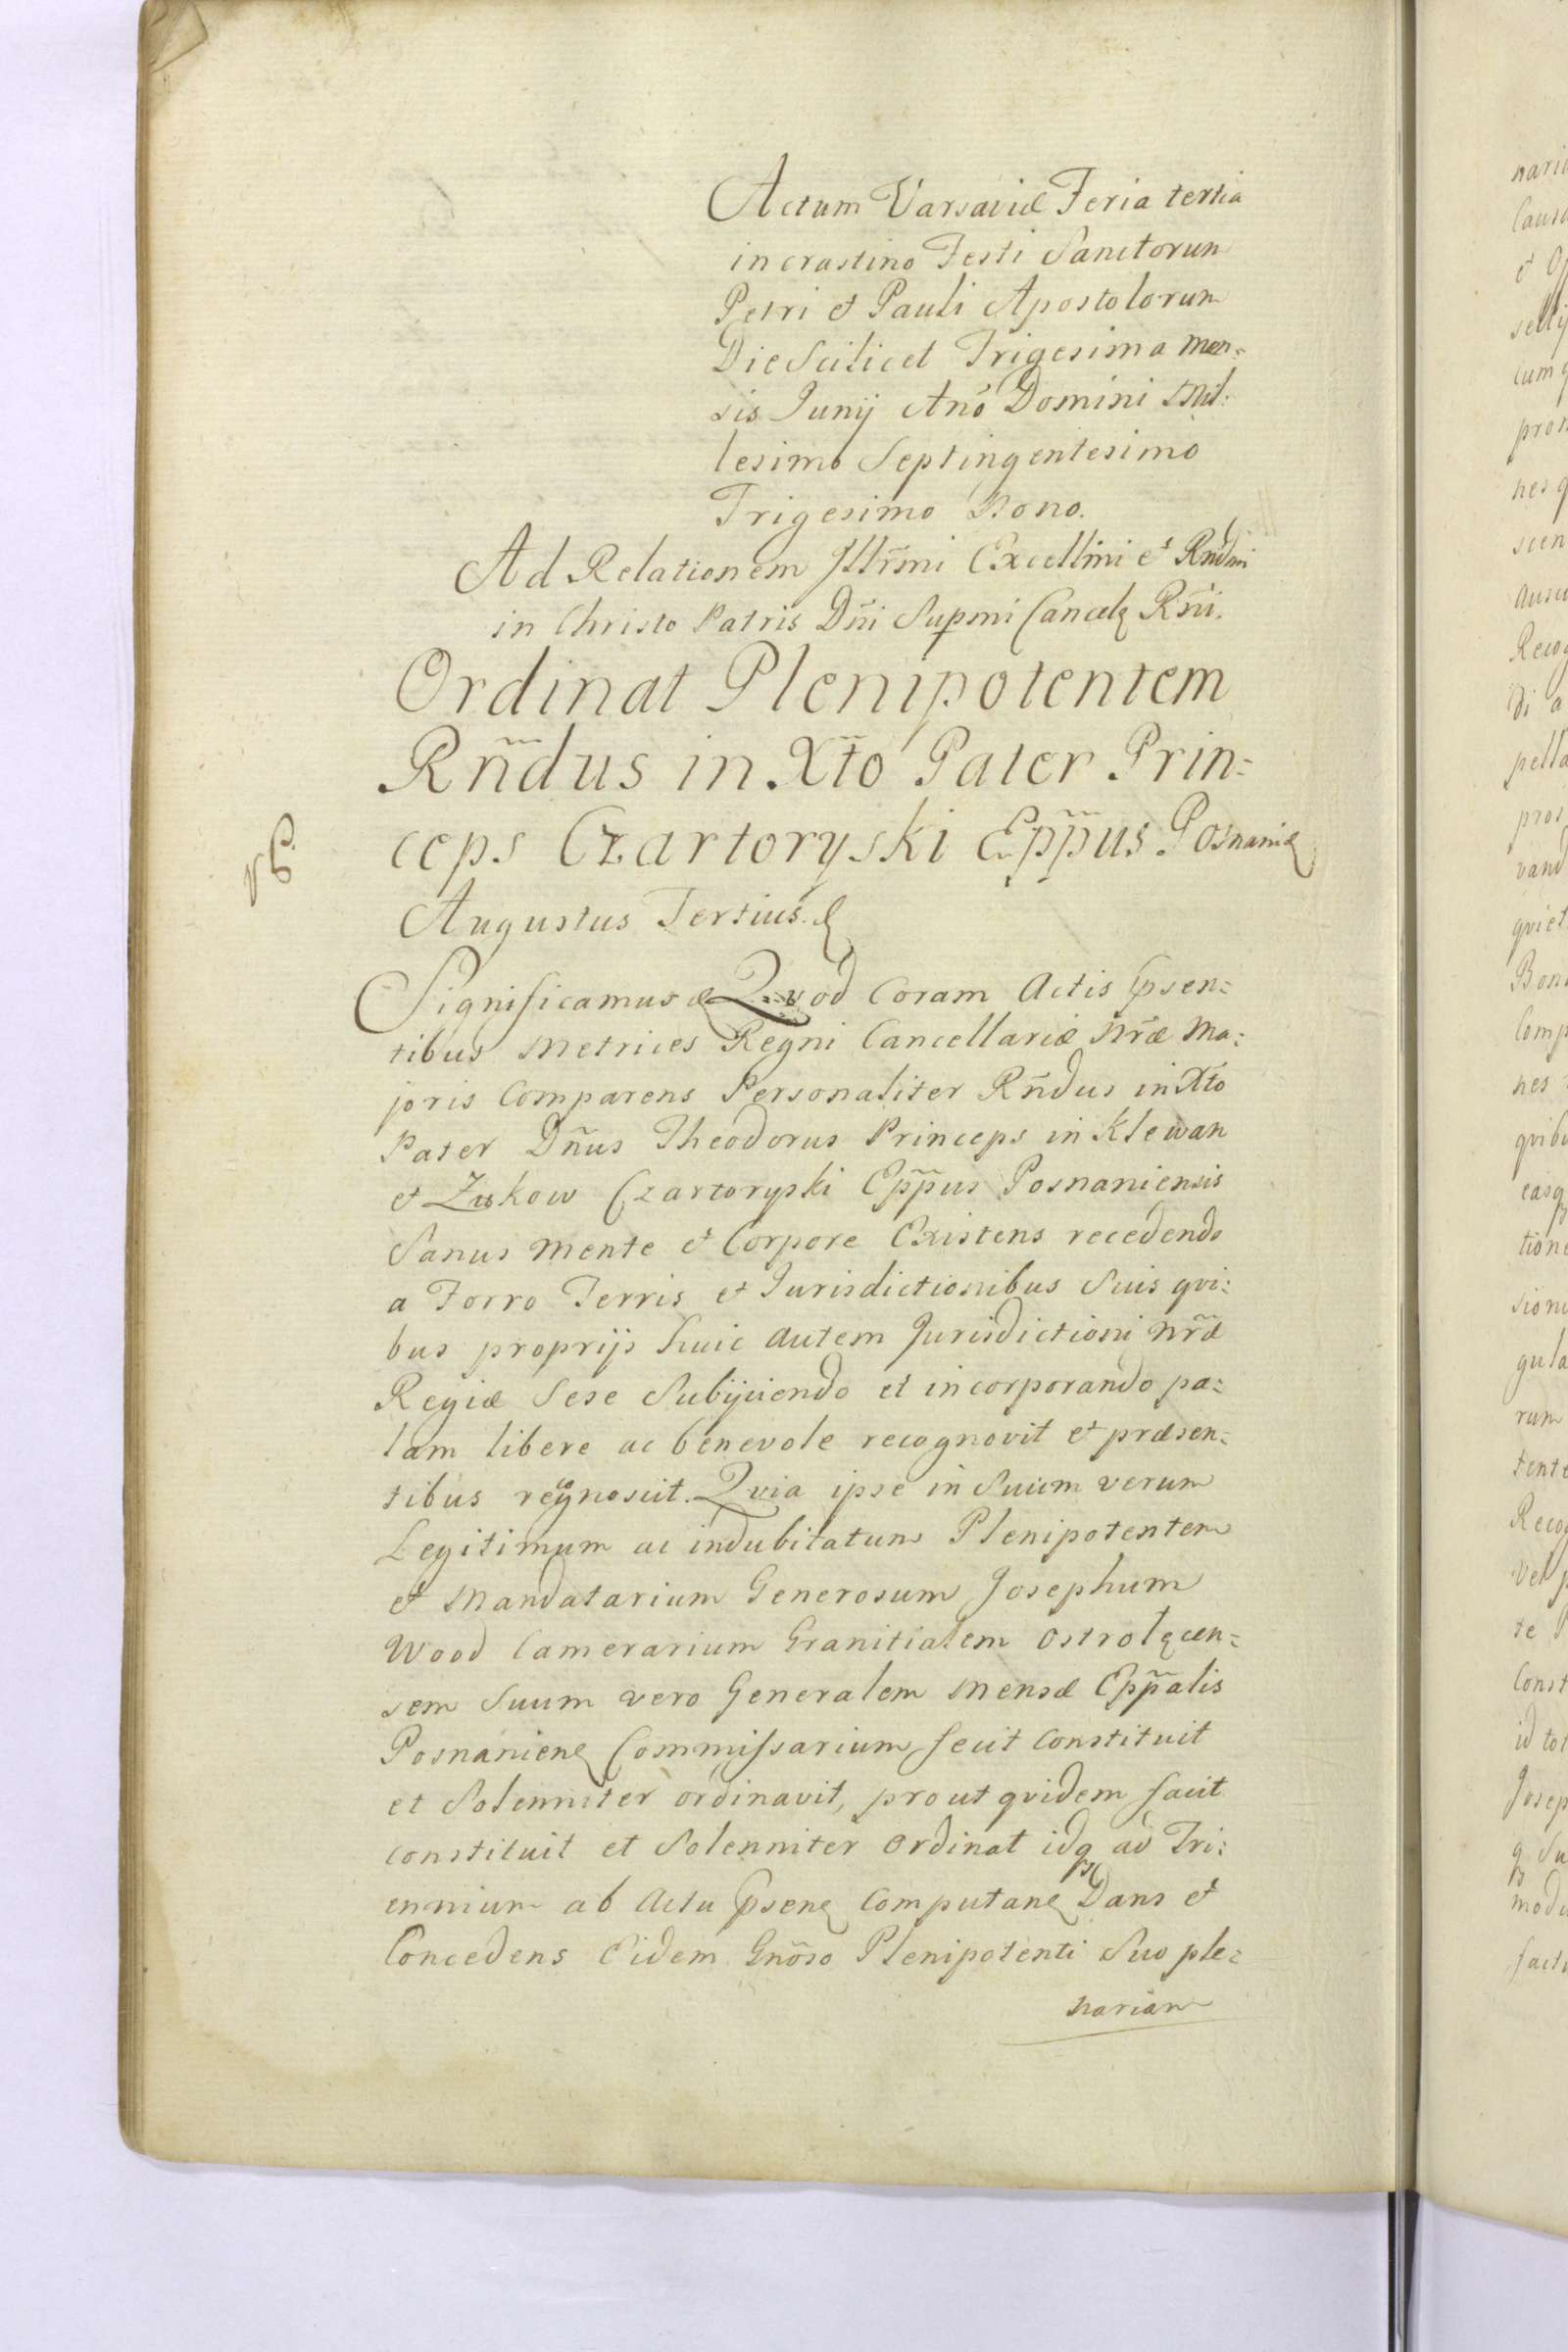 Actum Varsaviæ Feria tertia
in crastino Festi Sanctorum
Petri et Pauli Apostolorum
Die Scilicet Trigesima men=
sis Junij Anõ Domini Mil:
lesimo Septingentesimo
Trigesimo Nono.
Ad Relationem Jllrm̃i Excellm̃i et Rnd̃mi
in Christo Patris Dñi Supmi Cancell Rñi.
Ordinat Plenipotentem
Rñdus in Xt̃o Pater Prin=
ceps Czartoryski Epp̃us Posnaniæ
Augustus Tertius. &
Significamus & Quod Coram Actis Psen=
tibus Metrices Regni Cancellariæ Nr̃æ Ma:
joris Comparens Personaliter Rñdus in Xt̃o
Pater Dñus Theodorus Princeps in Klewan
et Zukow Czartoryski Epp̃us Posnaniensis
Sanus mente et Corpore Existens recedendo
a Forro Terris et Jurisdictionibus Suis qvi:
bus proprijs huic autem Jurisdictioni nr̃æ
Regiæ Sese Subijciendo et incorporando pa=
lam libere ac benevole recognovit et præsen=
tibus recognoscit. Qvia ipse in Suum verum
Legitimum ac indubitatum Plenipotentem
et Mandatarium Generosum Josephum
Wood Camerarium Granitialem Ostrolęcen=
sem Suum vero Generalem Mensæ Epp̃alis
Posnanien Commissarium fecit Constituit
et Solenniter ordinavit, prout qvidem facit
constituit et Solenniter Ordinat idq ad Tri:
ennium ab Actu Psen Computan Dans et
Concedens Eidem Gnõso Plenipotenti Suo ple=
nariam